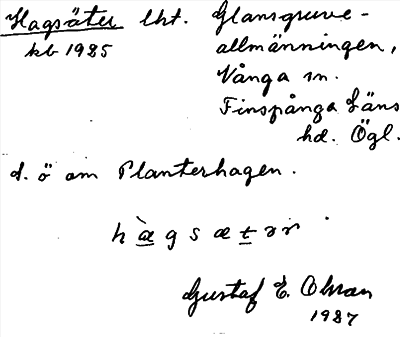 Hagsäter lht. Glansgruve-
kb 1985 allmänningen,
Vånga sn.
Finspånga läns
hd. Ögl.
d. ö om Planterhagen.
h æ̀ g s æ t ə r
Gustaf E. Ohman
1987